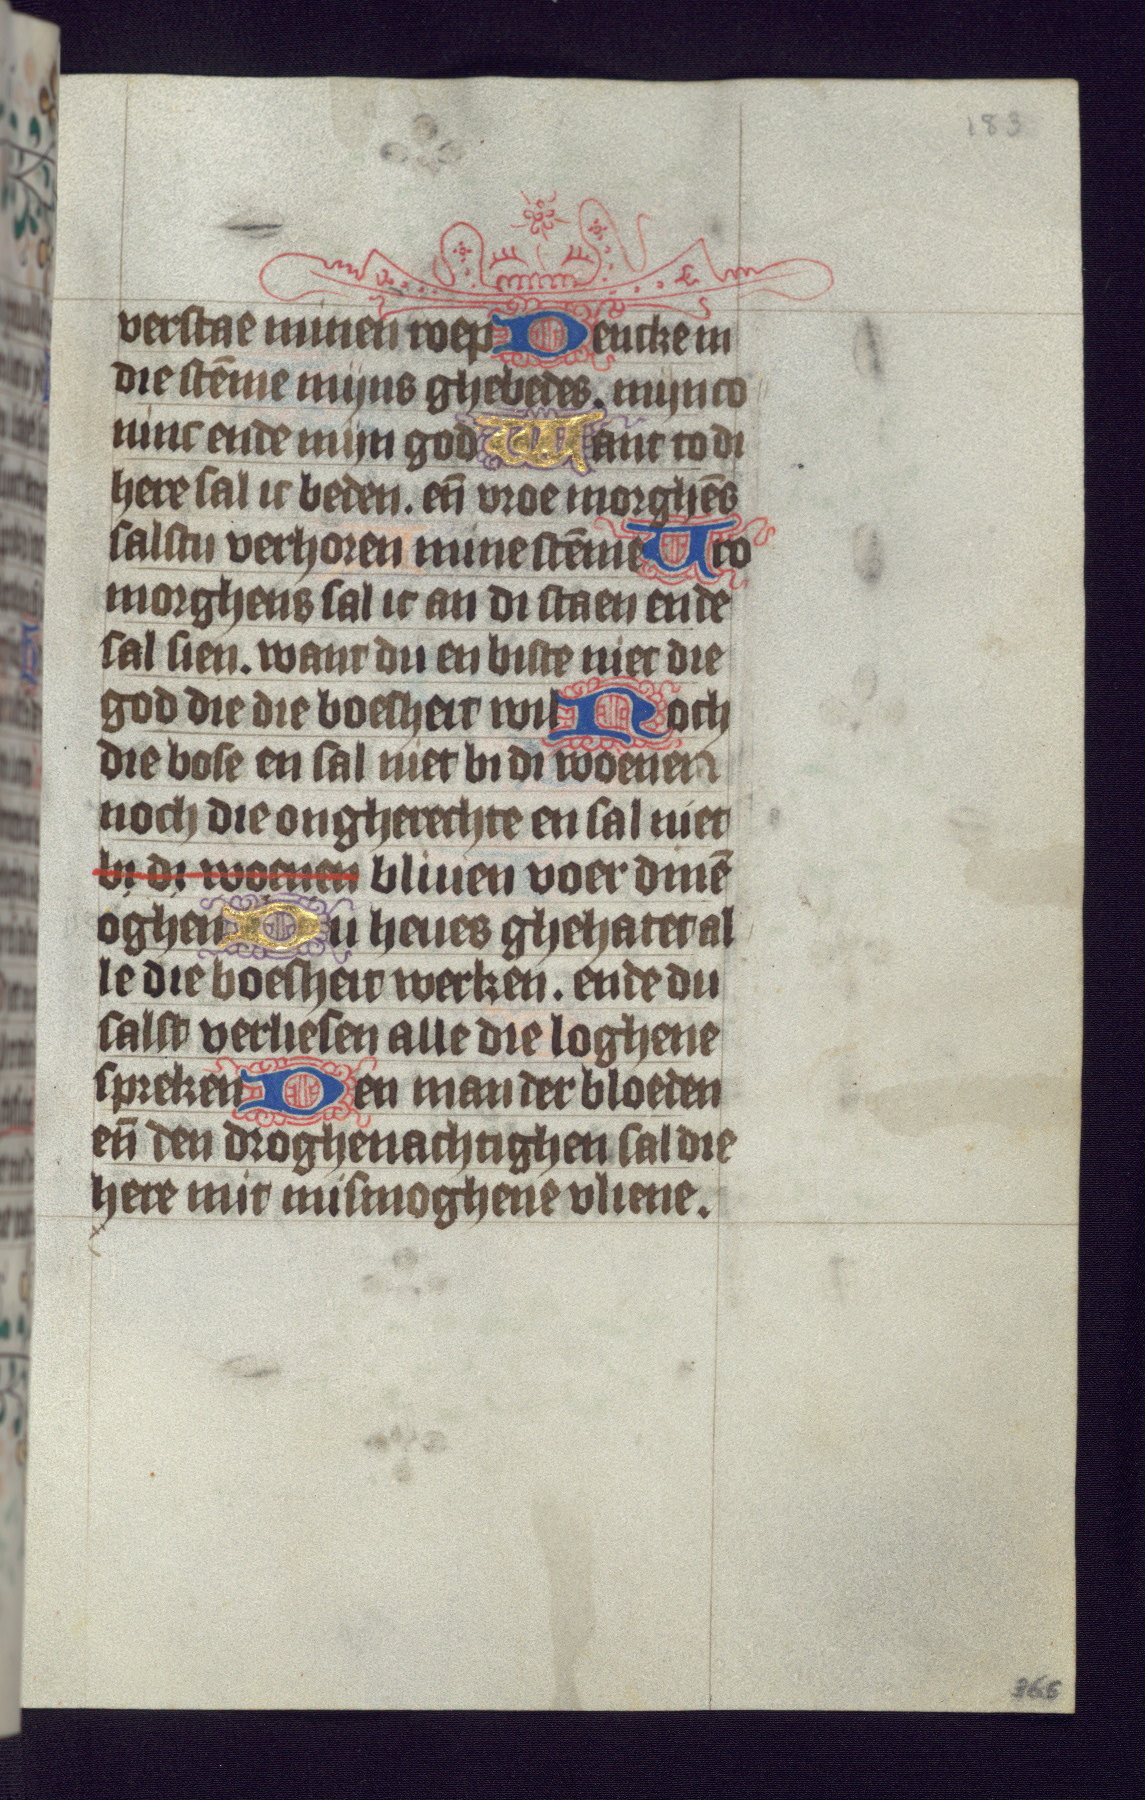 183
verstae minen roep Dencke in
die stēme mijns ghebedes. mijn co
ninc ende mijn god Want to di
here sal ic beden. eñ vroe morghēs
salstu verhoren mine stēme Vro
morghens sal ic an di staen ende
sal sien. want du en biste niet die
god die die boesheit wil Noch
die bose en sal niet bi di woenen
noch die ongherechte en sal niet
bi di woenen bliuen voer dinē
oghen Du heues ghehatet al
le die boesheit werken. ende du
salst verliesen alle die loghene
spreken Den man der bloeden
eñ den droghenachtighen sal die
here mit mismoghene vliene.
366